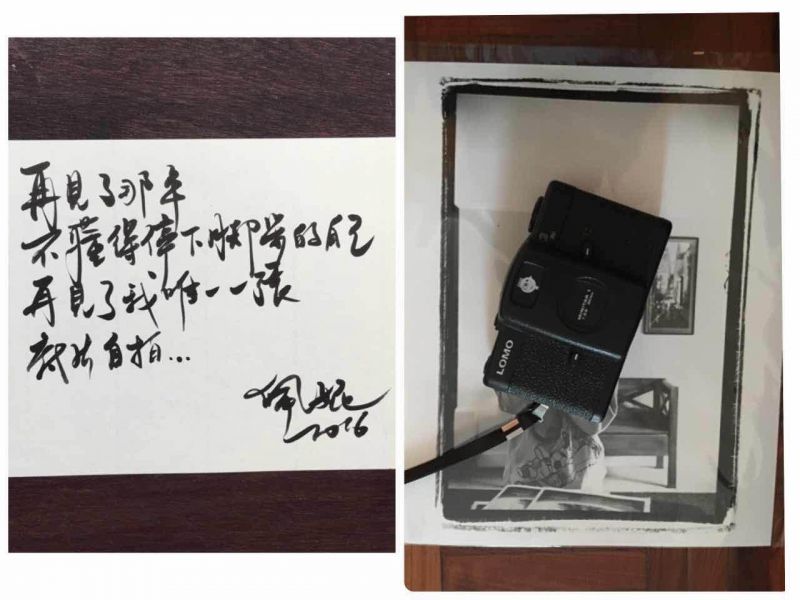 再見了那年
不懂得停下腳步的自己
再見了我唯一一張
自拍...
2016
LOMO
MINITAR 1